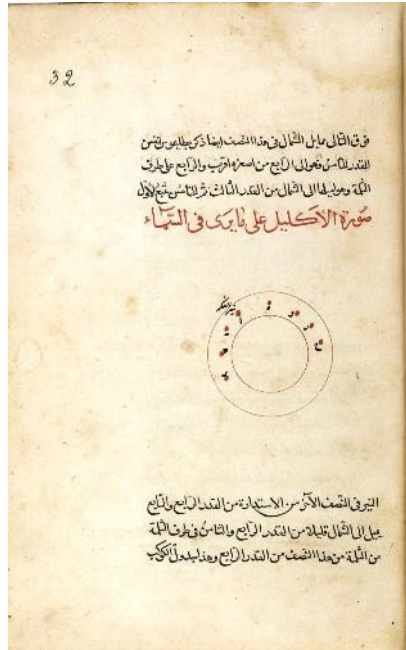 32
فوق التالى مايل الشمال فى هذا النصف ايضا ذكر بطلميوس
القدر الخامس وهو الى الرابع من اصغره اقرب والرابع على طرف
الثلمة وهو الى الشمال من القدر الثالث الخامس يتبع الاول
صورة الاكليل على ما يرى فى السماء
النير فى النصف الآخر من الاستدارة من القدر الرابع والسابع
يميل الى الشمال قليلا من القدر الرابع والثامن فى طرف الثلمة
من الثلمة من هذا النصف من القدر الرابع وهذا جدول الكوكب